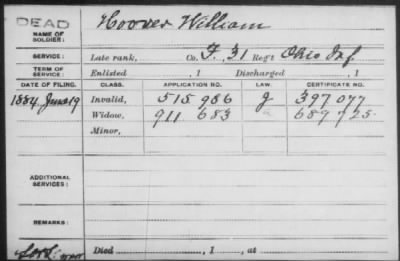 DEAD
NAME OF SOLDIER:
Hoover William
SERVICE:
Late rank, Co. F. 31 Reg't Ohio Inf.
TERM OF SERVICE:
Enlisted , 1 Discharged , 1
DATE OF FILING. CLASS. APPLICATION NO. LAW. CERTIFICATE NO.
1884 June 19 Invalid, 515 986 g 397 077
Widow, 911 683 689 725.
Minor,
ADDITIONAL SERVICES:
REMARKS:
Died , 1 , at